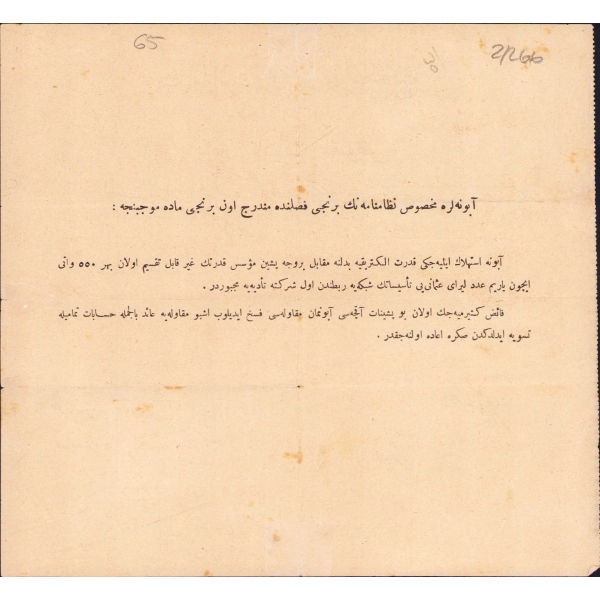 65
2/266
آبونه‌لره مخصوص نظامنامه‌نك برنجی فصلنده مندرج اون برنجی ماده موجبنجه :
آبونه استهلاك ایلیه‌جكی قدرت الكتریقیه بدلنه مقابل بروجه پشین مؤسس قدرتك غیر قابل تقسیم اولان بهر ٥٥٠ واتی
ایچون یاریم عدد لیرای عثمانی‌یی تأسیساتك شبكه‌یه ربطندن اول شركته تأدیه‌یه مجبوردر .
فائض كتیرمیه‌جك اولان بو پشینات آقچه‌سی آبونمان مقاوله‌سی فسخ ایدیلوب اشبو مقاوله‌یه عائد بالجمله حسابات تمامیله
تسویه ایدلدكدن صكره اعاده اولنه‌جقدر .